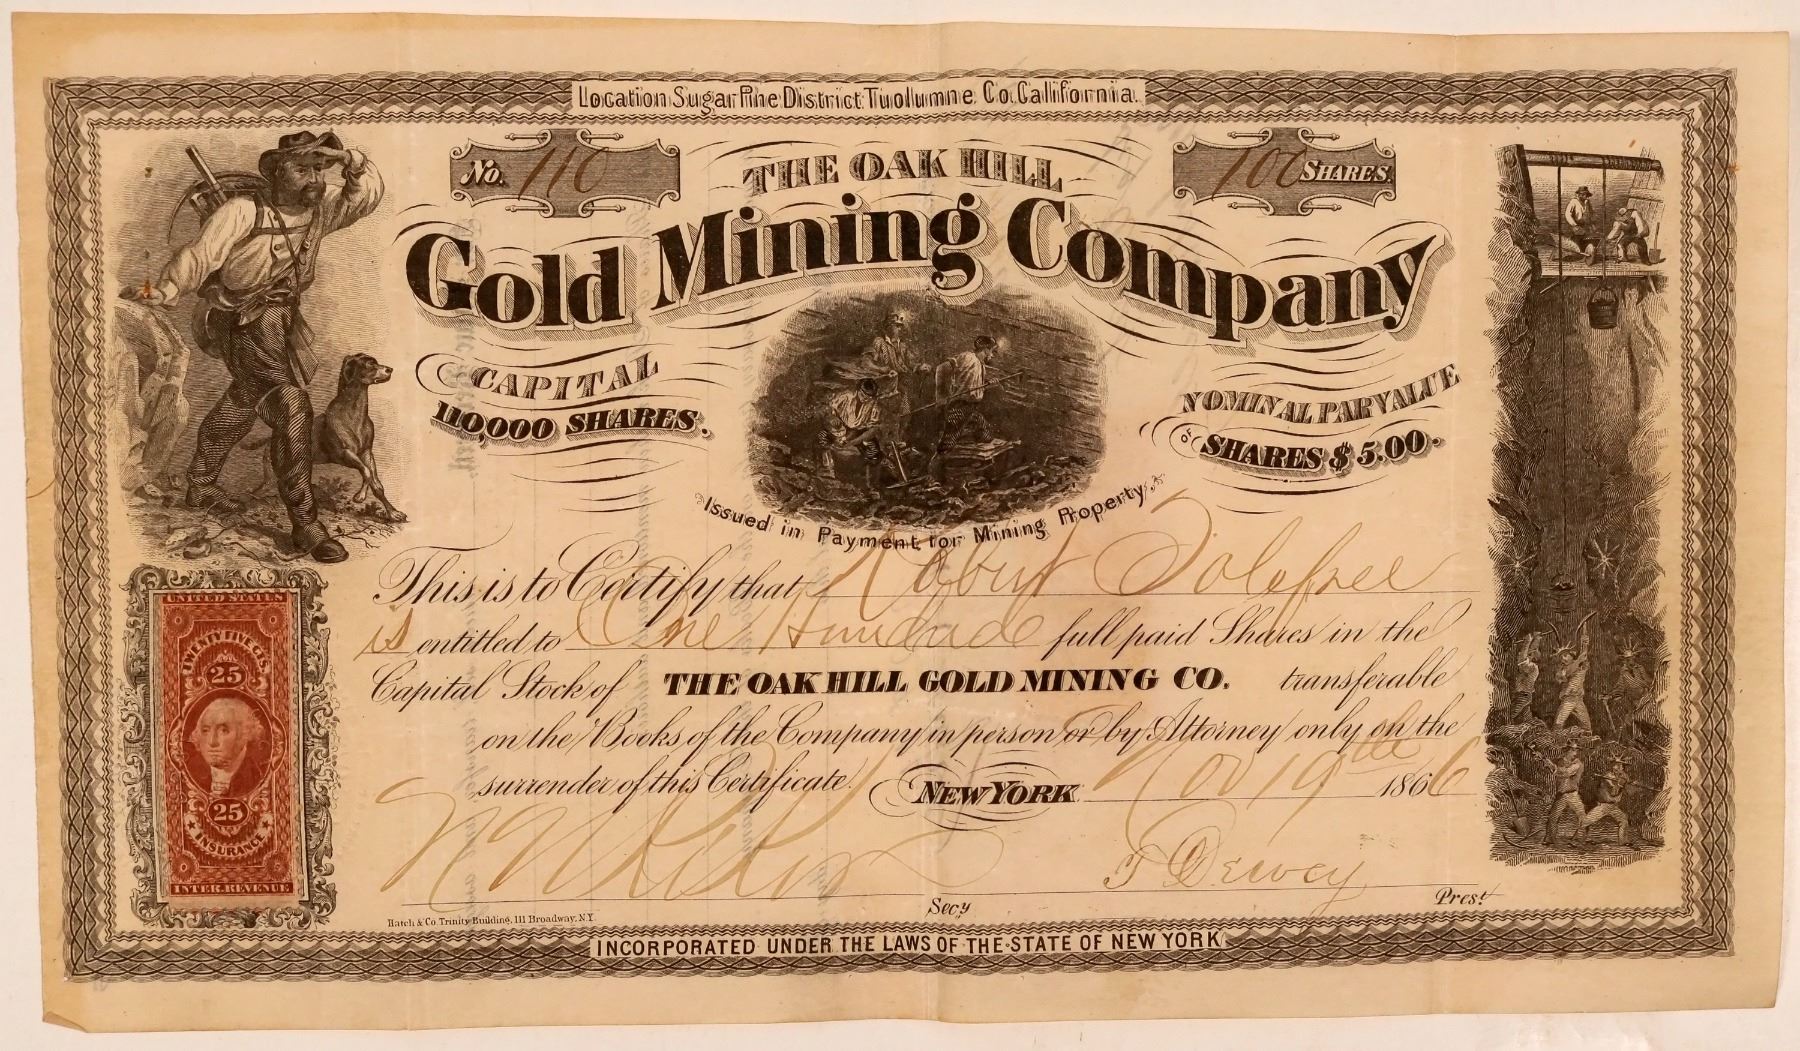 Location Sugar Pine District Tuolumne Co. California.
No. 110
100 SHARES
THE OAK HILL
Gold Mining Company
CAPITAL
110,000 SHARES.
NOMINAL PAR VALUE
OF SHARES $5.00.
Issued in Payment for Mining Property.
This is to Certify that Robert Tolefree
is entitled to One Hundred full paid Shares in the
Capital Stock of THE OAK HILL GOLD MINING CO. transferable
on the Books of the Company in person or by Attorney only on the
surrender of this Certificate. NEW YORK Nov 19th 1866
Secy
T Dewey Prest
UNITED STATES
TWENTY FIVE CTS.
25
25
INSURANCE
INTER. REVENUE
Hatch & Co. Trinity Building, 111 Broadway, N.Y.
INCORPORATED UNDER THE LAWS OF THE STATE OF NEW YORK